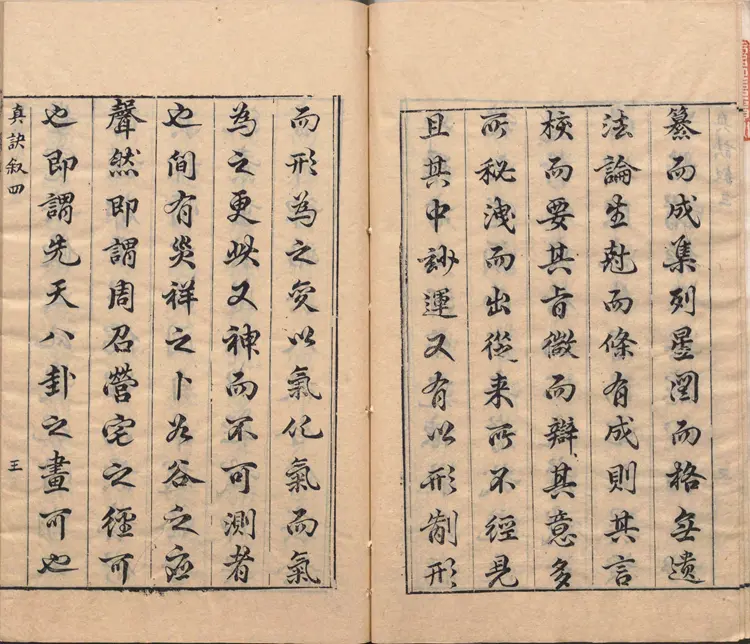 纂而成集列星圖而格無遺
法論生尅而條有成則其言
核而要其旨微而辯其意多
所秘洩而出從来所不經見
且其中妙運又有以形制形
而形為之變以氣化氣而氣
為之更此又神而不可測者
也間有災祥之卜如谷之應
聲然即謂周召營宅之經可
也即謂先天八卦之畫可也
真訣叙四